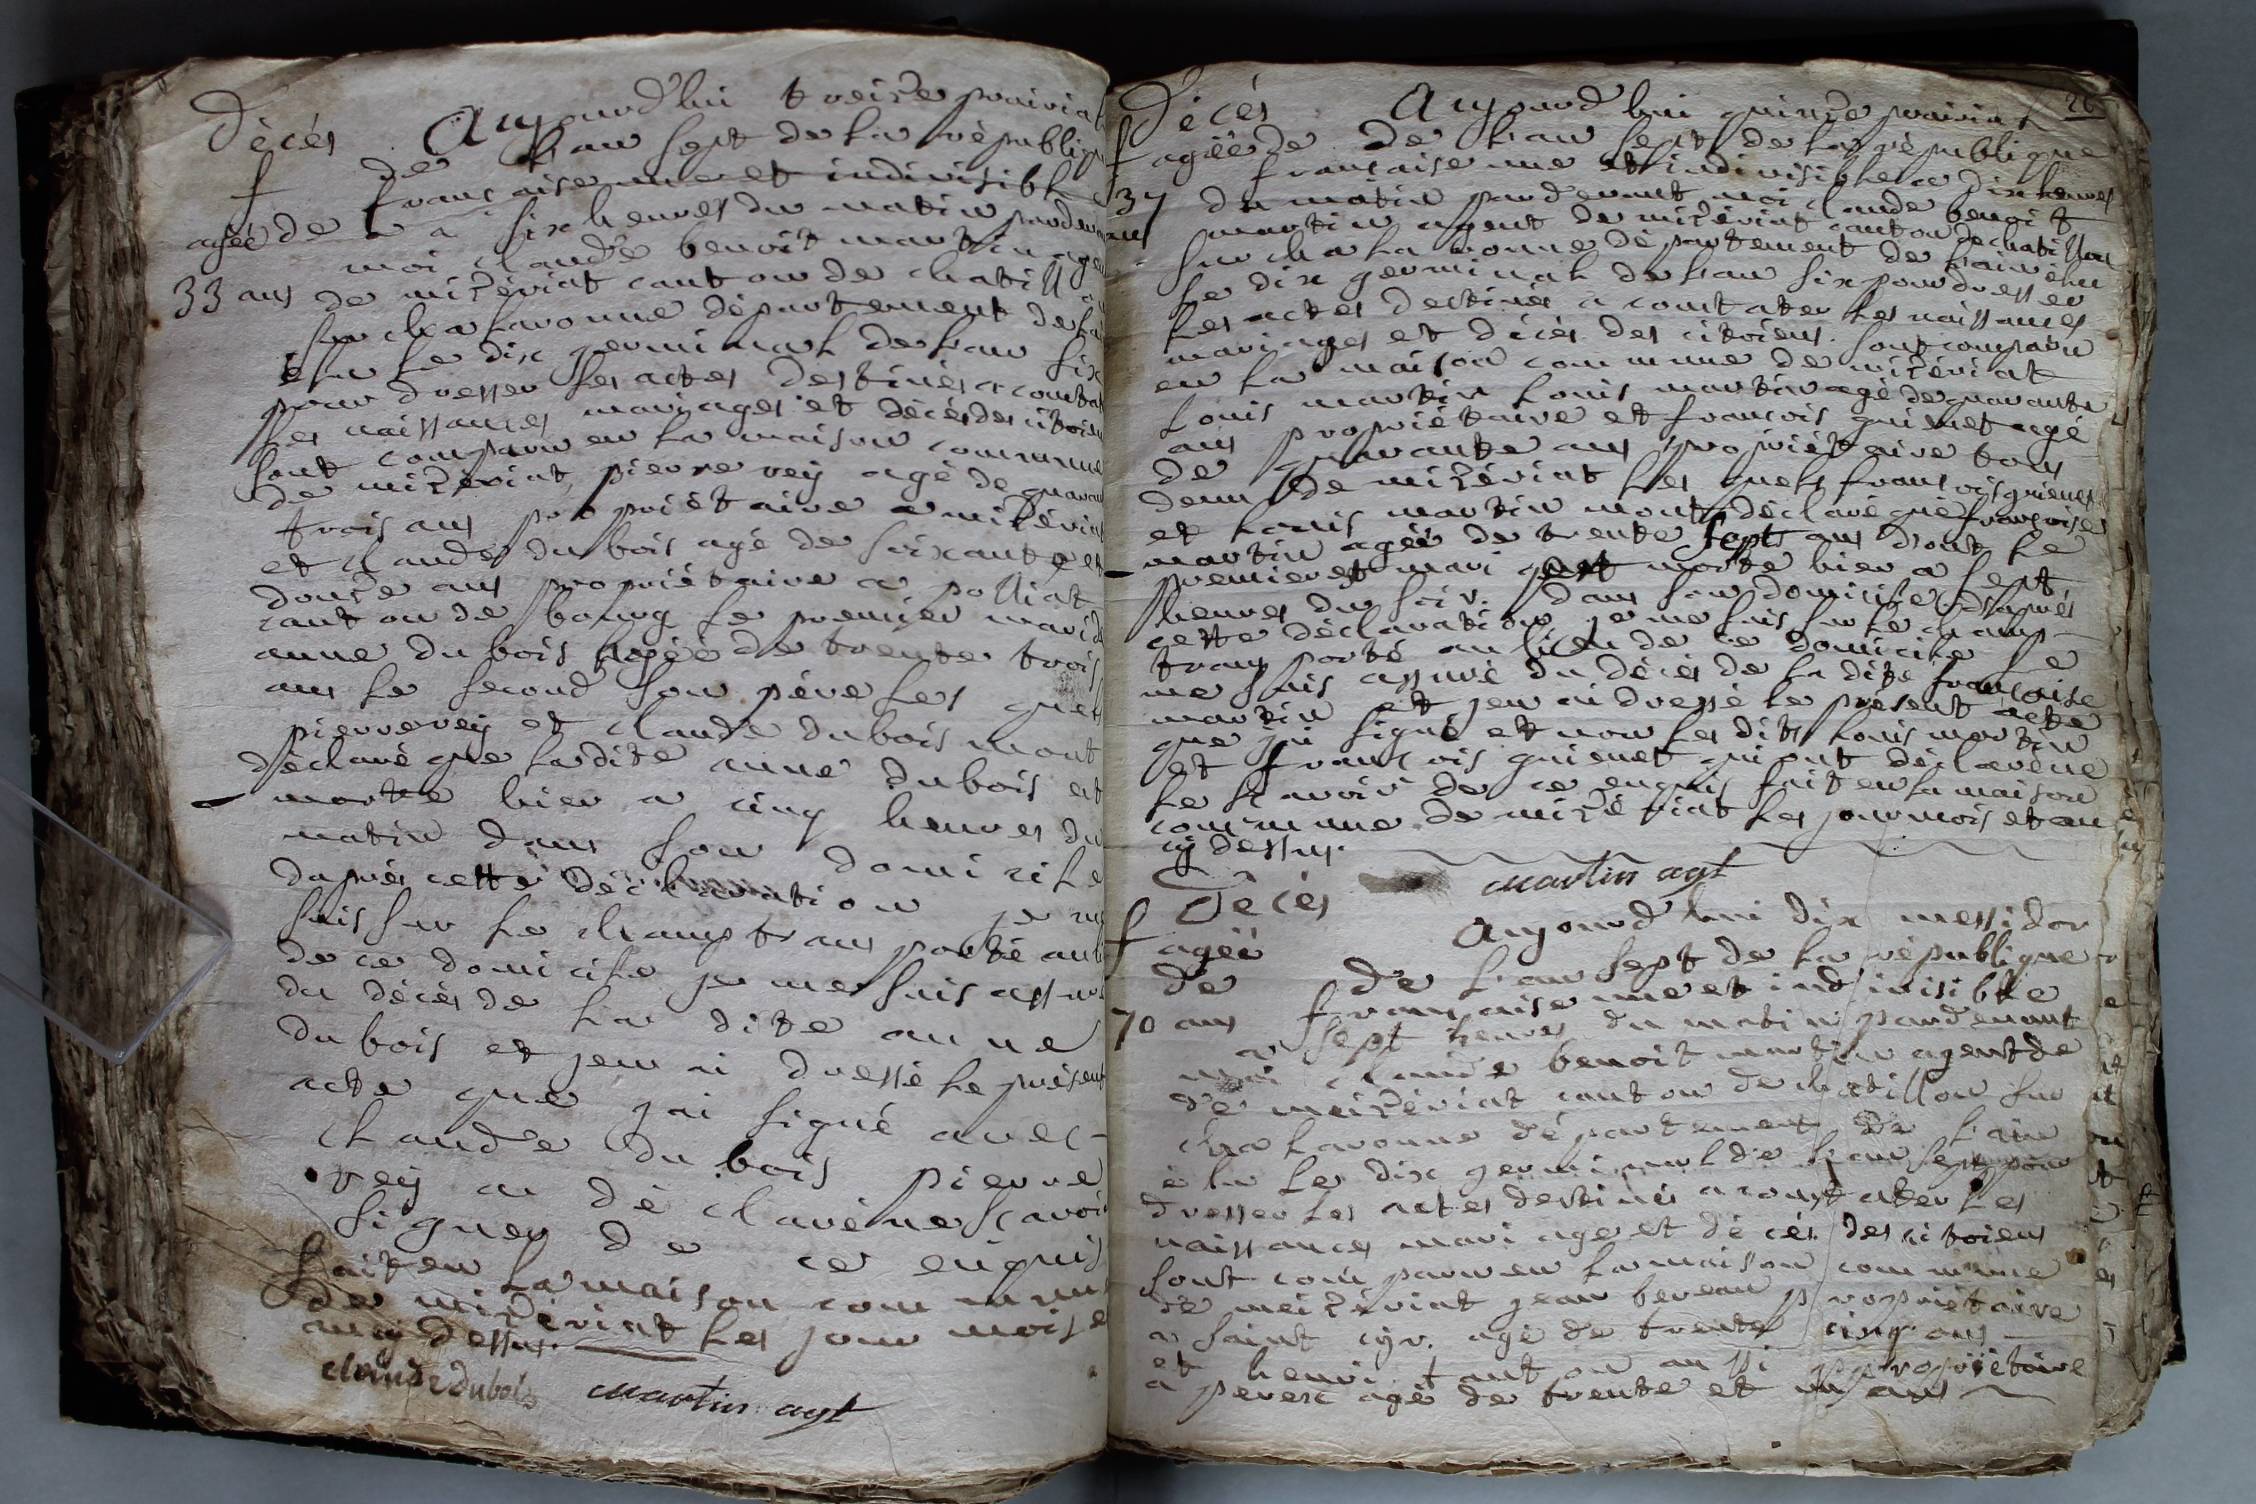 Décés Aujourd'hui treize prairial
f de l'an sept de la républiqu
française une et indivisible
agéé de a six heures du matin pardeva
33 ans moi claude benoit martin agen
de mizériat canton de chatillon
sur chalaronne département de la
élu le dix germinal de l'an six
pour dresser les actes destinés a constat
les naissances mariages et décés des citoien
sont comparu en la maison commune
de mizériat, pierre rey agé de quaran
trois ans propriétaire a mizériat
et claude dubois agé de soixante et
douze ans propriétaire a polliat
canton de bourg le premier mari d
anne dubois agéé de trente trois
ans le second son pére les quel
pierre rey et claude dubois mont
déclaré que ladite anne dubois est
morte hier a cinq heures du
matin dans son domicile
daprés cette déclaration je me
suis sur le champ trans porté au li
de ce domicile je me suis assuré
du décés de la dite anne
dubois et jen ai dressé le présent
acte que jai signé avec
claude dubois pierre
rey a déclaré ne scavoir
signer de ce enquis
fait en la maison commune
de mizériat les jour mois e
an cy dessus.
claude dubois martin agt
26
Décés Aujourd hui quinze prairial
f agéé de de l'an sept de la république
française une et indivisible a dix heures
37 du matin pardevant moi claude benoit
ans martin agent de mizériat canton de chatillon
sur chalaronne département de l'ain élu
le dix germinal de l'an six pour dresser
les actes destinés a constater les naissances
mariages et décés des citoiens. sont comparu
en la maison commune de mizériat
Louis martin Louis martin agé de quarante
ans propriétaire et francois guienet agé
de quarante ans propriétaire tous
deux de mizériat les quels francois guienet
et Louis martin mont déclaré que francoise
martin agéé de trente sept ans dont le
premier est mari est morte hier a sept
heures du soir. dans son domicile daprés
cette déclaration je me suis sur le champ
trans porté au lieu de ce domicile je
me suis assuré du décés de la dite francoise
martin et jen ai dressé le présent acte
que jai signé et non les dits Louis martin
et francois guienet qui ont déclaré ne
le scavoir de ce enquis fait en la maison
commune de mizériat les jour mois et an
cy dessus.
martin agt
Décés
f agéé Aujourd hui dix messidor
de de l'an sept de la république
70 ans française une et indivisible
a sept heures du matin pardevant
moi claude benoit martin agent de
de meizériat canton de chatillon sur
chalaronne département de l'ain
élu le dix germinal de l'an sept pour
dresser les actes destinés a constater les
naissances mariage et décés des citoiens
sont comparu en la maison commune
de meizériat jean bereau propriétaire
a saint cyr. agé de trente cinq ans
et henri tanton aussi propriétaire
a perex agé de trente et un ans